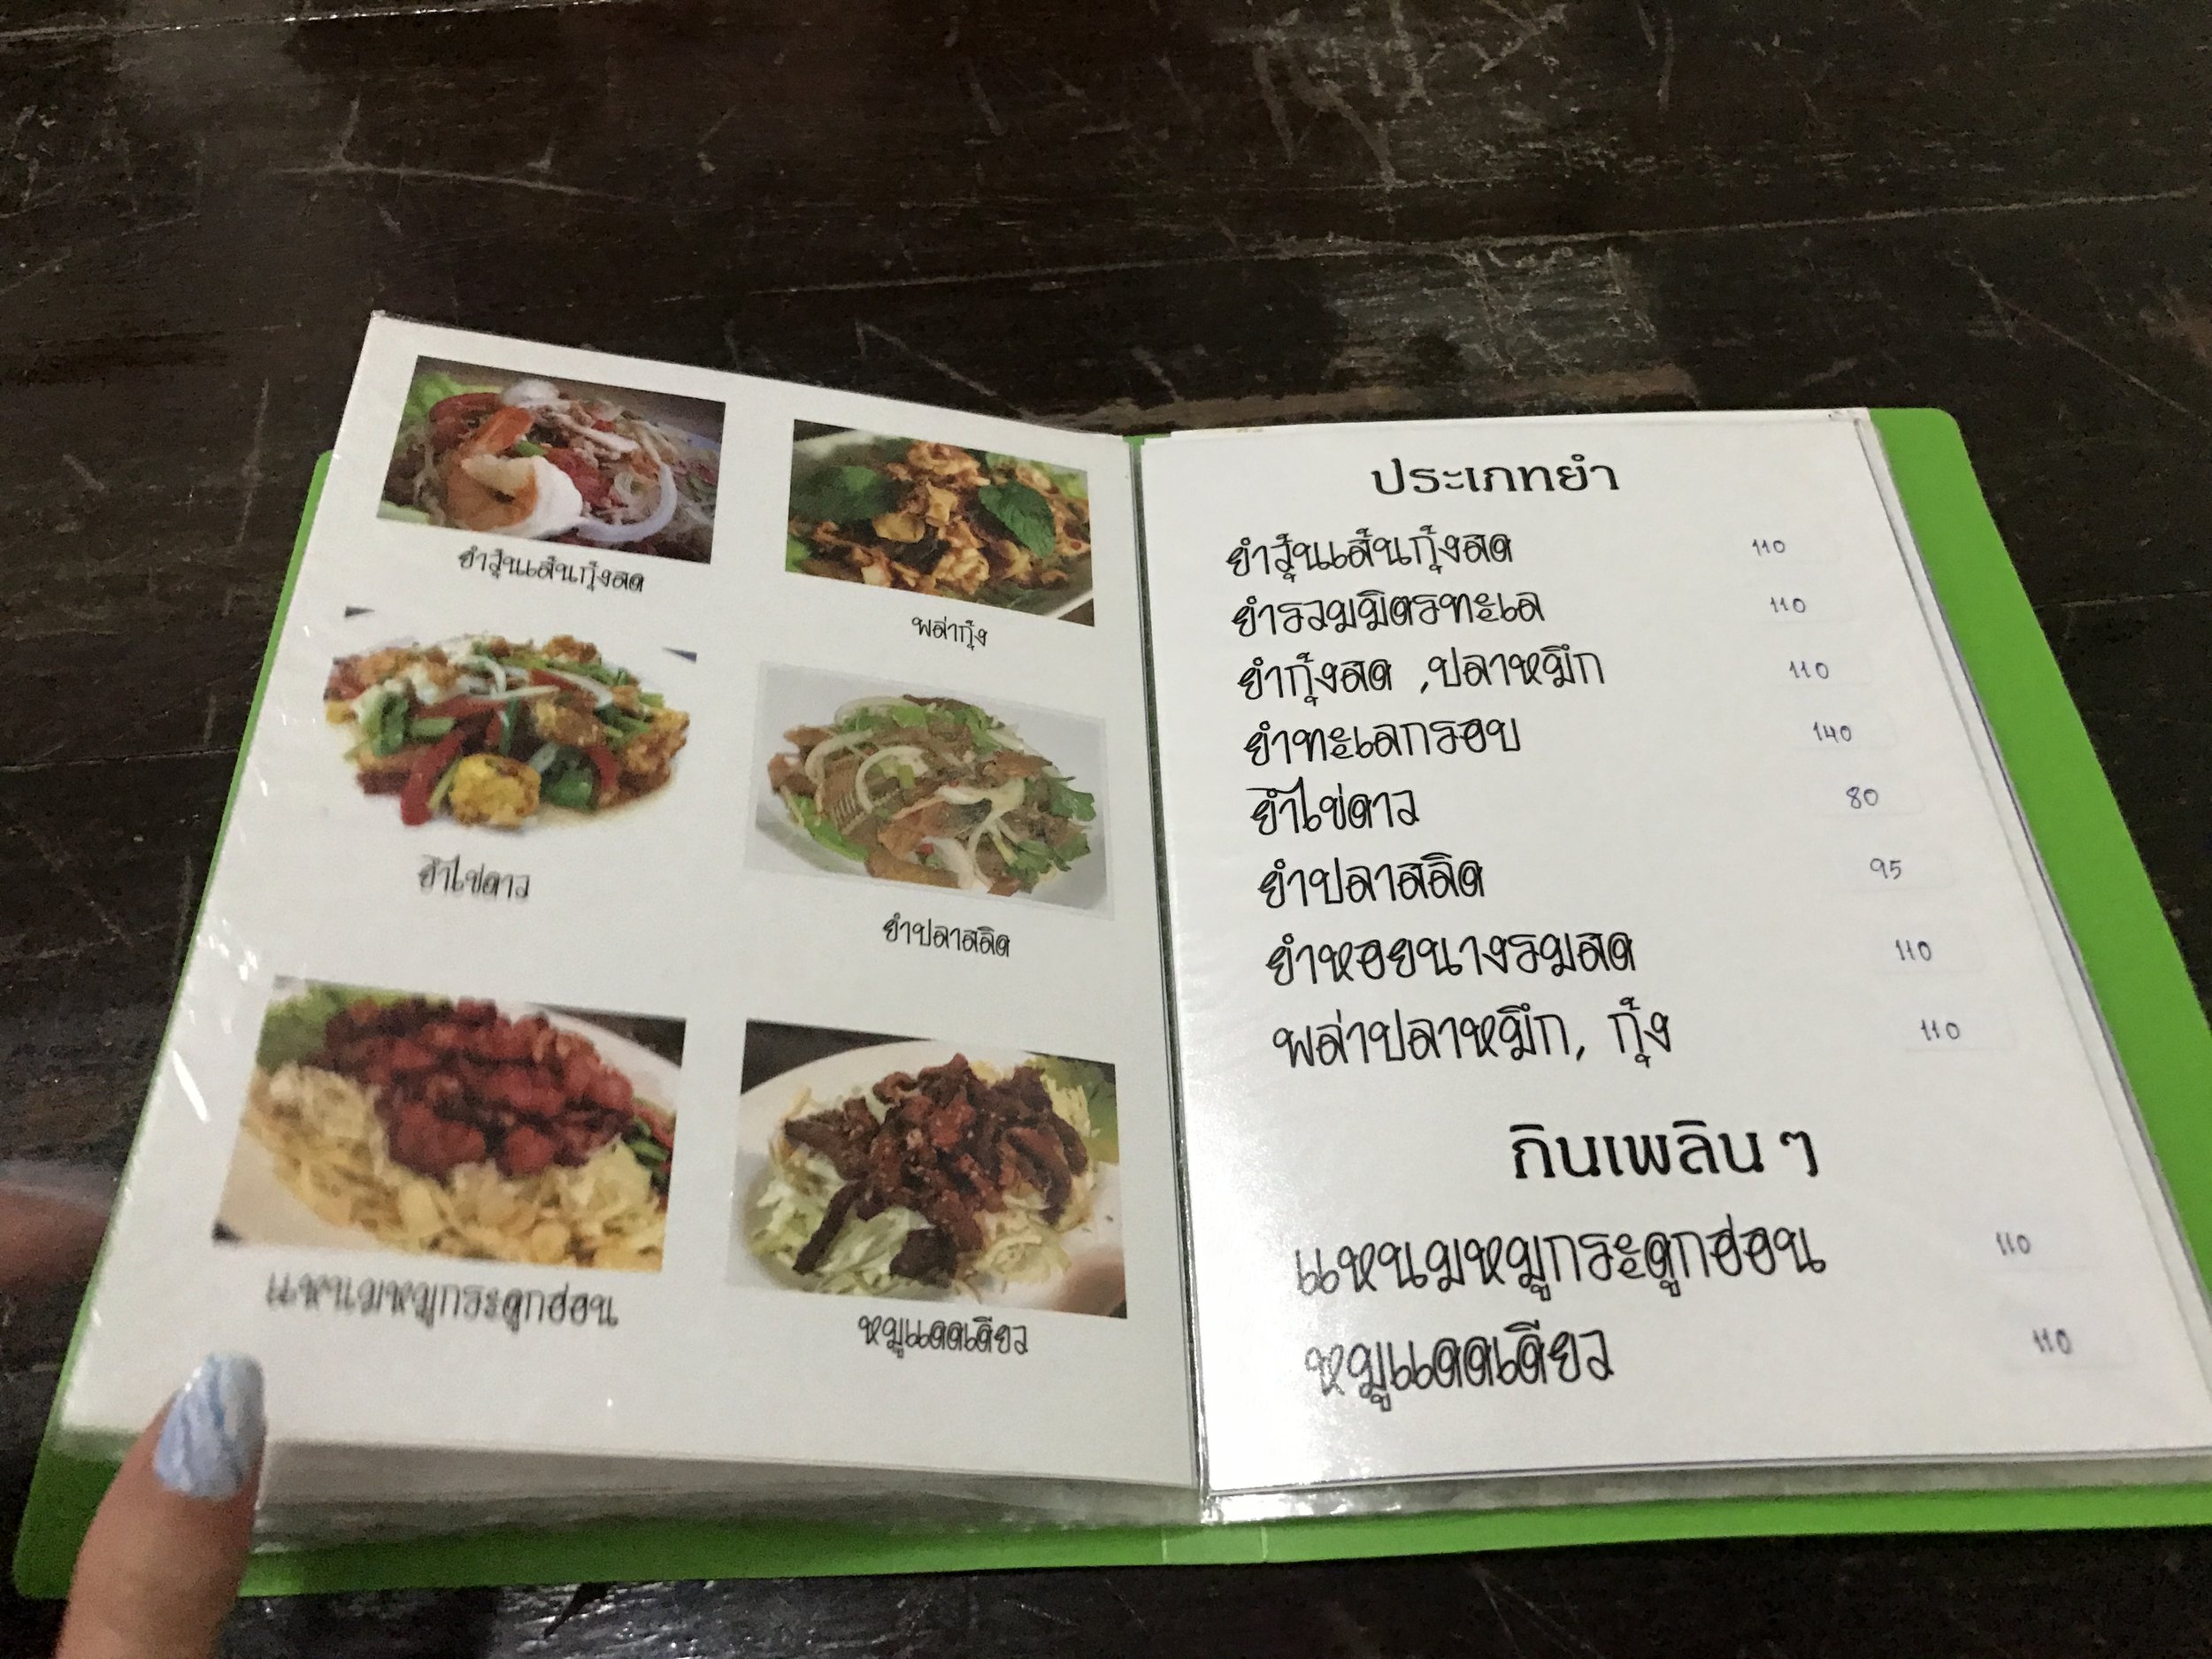 ยำวุ้นเส้นกุ้งสด
พล่ากุ้ง
ยำไข่ดาว
ยำปลาสลิด
แหนมหมูกระดูกอ่อน
หมูแดดเดียว
ประเภทยำ
ยำวุ้นเส้นกุ้งสด 110
ยำรวมมิตรทะเล 110
ยำกุ้งสด ,ปลาหมึก 110
ยำทะเลกรอบ 140
ยำไข่ดาว 80
ยำปลาสลิด 95
ยำหอยนางรมสด 110
พล่าปลาหมึก, กุ้ง 110
กินเพลิน ๆ
แหนมหมูกระดูกอ่อน 110
หมูแดดเดียว 110